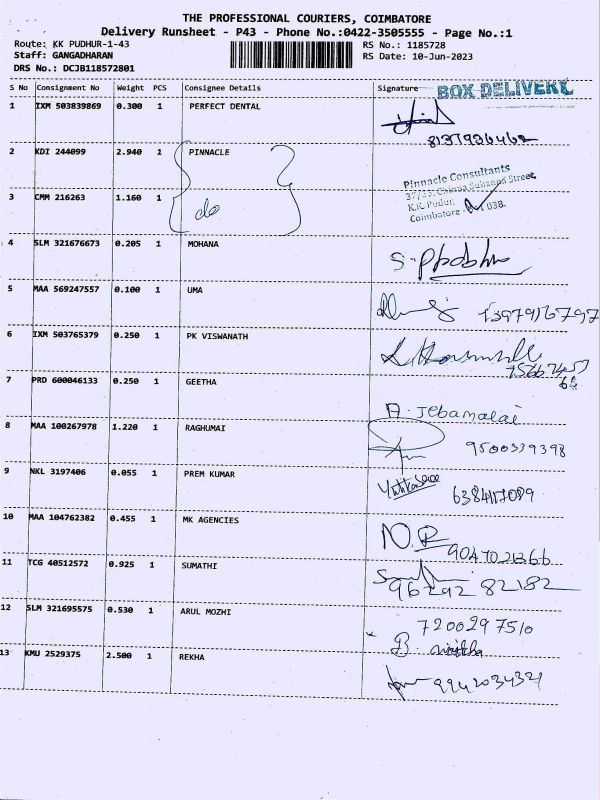 THE PROFESSIONAL COURIERS, COIMBATORE
Delivery Runsheet - P43 - Phone No.:0422-3505555 - Page No.:1
Route: KK PUDHUR-1-43 RS No.: 1185728
Staff: GANGADHARAN RS Date: 10-Jun-2023
DRS No.: DCJB118572801
S No Consignment No Weight PCS Consignee Details Signature BOX DELIVERY
1 IXM 503839869 0.300 1 PERFECT DENTAL
8137936462
2 KDI 244099 2.940 1 PINNACLE
Pinnacle Consultants
Street,
3 CMM 216263 1.160 1 do
K.K. Pudur,
Coimbatore 038.
4 SLM 321676673 0.205 1 MOHANA
S. Prabhu
5 MAA 569247557 0.100 1 UMA
6 IXM 503765379 0.250 1 PK VISWANATH
7 PRD 600046133 0.250 1 GEETHA
A. Jebamalai
8 MAA 100267978 1.220 1 RAGHUMAI
9500339398
9 NKL 3197406 0.055 1 PREM KUMAR
10 MAA 104762382 0.455 1 MK AGENCIES
9047021366
11 TCG 40512572 0.925 1 SUMATHI
96292 82182
12 SLM 321695575 0.530 1 ARUL MOZHI
7200297510
13 KMU 2529375 2.500 1 REKHA
9942034321